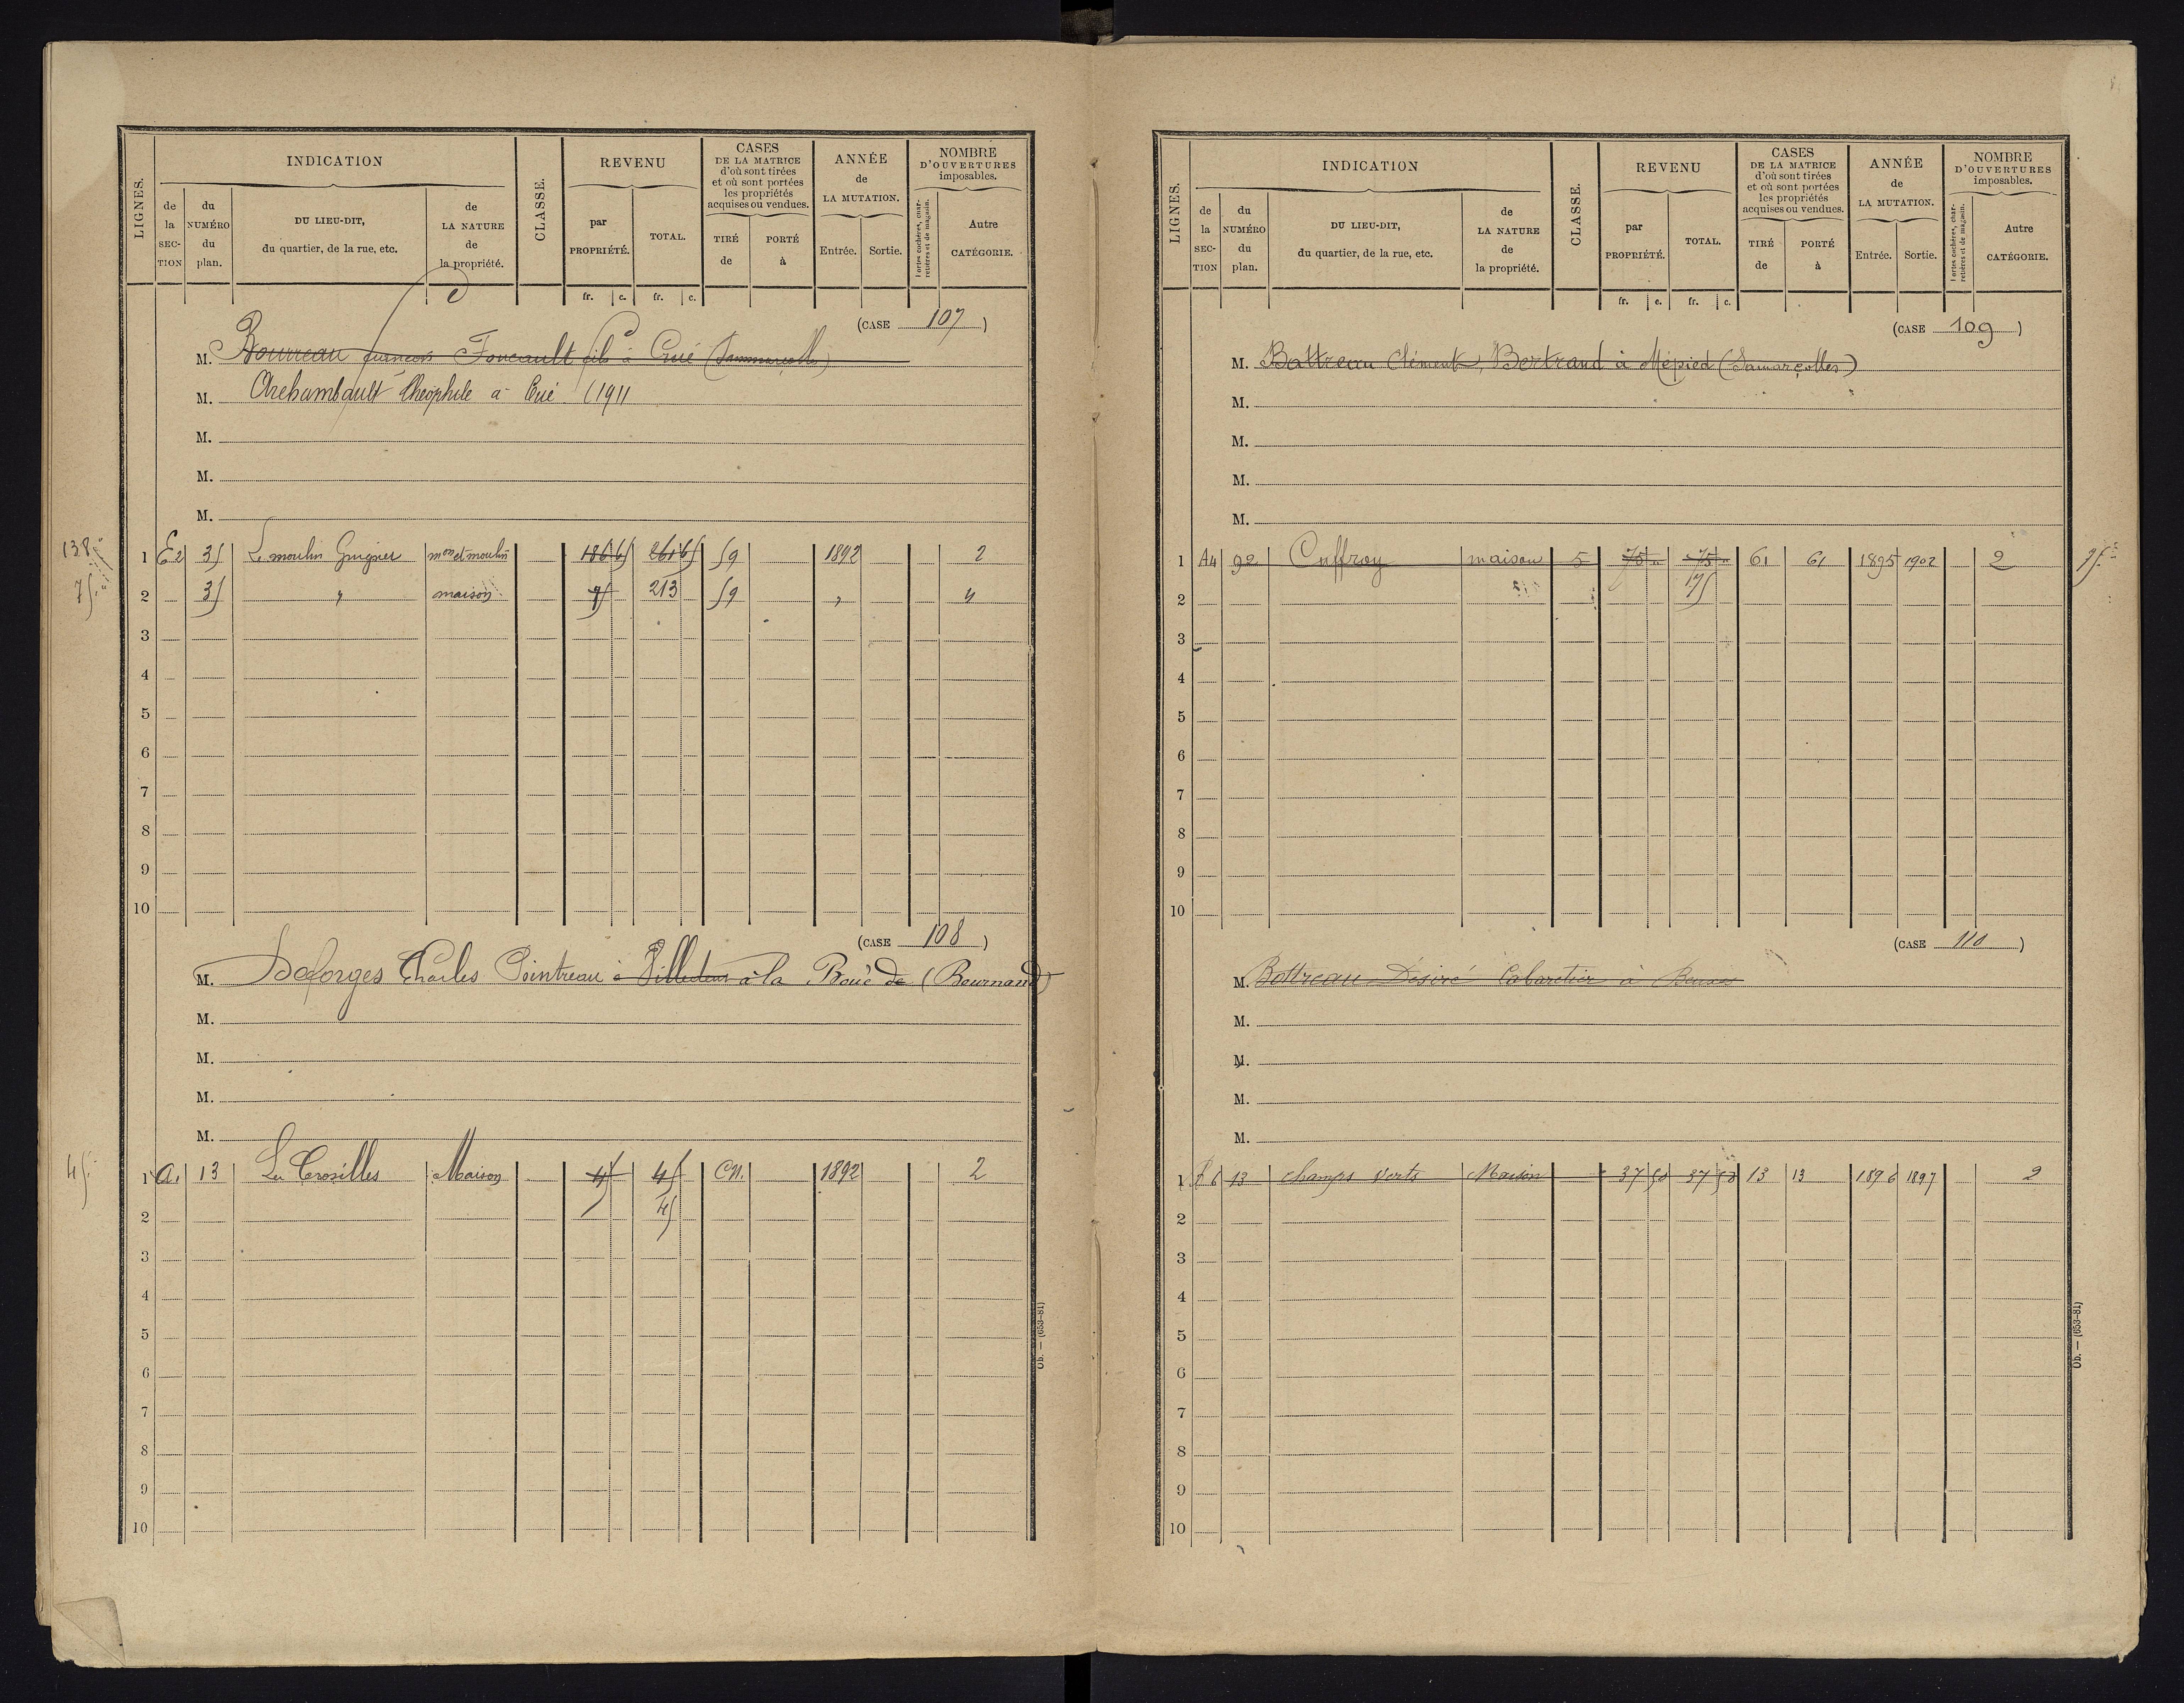 LIGNES.
INDICATION
de la SECTION
du NUMÉRO du plan.
DU LIEU-DIT, du quartier, de la rue, etc.
de LA NATURE de la propriété.
CLASSE.
REVENU
par PROPRIÉTÉ.
TOTAL.
fr. c. fr. c.
CASES
DE LA MATRICE
d'où sont tirées
et où sont portées
les propriétés
acquises ou vendues.
TIRÉ de
PORTÉ à
ANNÉE
de
LA MUTATION.
Entrée. Sortie.
NOMBRE
D'OUVERTURES
imposables.
Portes cochères, charretières et de magasin.
Autre CATÉGORIE.
(CASE 107)
M. Bourreau Foucault fils à Crué
M. Archambault Théophile à Crué 1911
M.
M.
M.
138
1 E2 35 Le moulin Guignier mon et moulin 59 1892 2
75
2 35 " maison 75 213 59 " 4
3
4
5
6
7
8
9
10
(CASE 108)
M. Deforges Charles Pointreau à à la Roué de (Bournand)
M.
M.
M.
M.
45
1 A. 13 Les Crosilles Maison 45 45 CN. 1892 2
2 45
3
4
5
6
7
8
9
10
Ob. — (653-81)
LIGNES.
INDICATION
de la SECTION
du NUMÉRO du plan.
DU LIEU-DIT, du quartier, de la rue, etc.
de LA NATURE de la propriété.
CLASSE.
REVENU
par PROPRIÉTÉ.
TOTAL.
fr. c. fr. c.
CASES
DE LA MATRICE
d'où sont tirées
et où sont portées
les propriétés
acquises ou vendues.
TIRÉ de
PORTÉ à
ANNÉE
de
LA MUTATION.
Entrée. Sortie.
NOMBRE
D'OUVERTURES
imposables.
Portes cochères, charretières et de magasin.
Autre CATÉGORIE.
(CASE 109)
M. Bottreau Clément, Bertrand à Mépied (Samarçolles)
M.
M.
M.
M.
1 A4 92 Cuffroy maison 5 75 " 75 " 61 61 1895 1902 2
2
3
4
5
6
7
8
9
10
(CASE 110)
M. Bottreau Désiré Cabaretier à
M.
M.
M.
M.
1 13 champs Verts Maison 37 50 37 50 13 13 1896 1897 2
2
3
4
5
6
7
8
9
10
Ob. — (653-81)